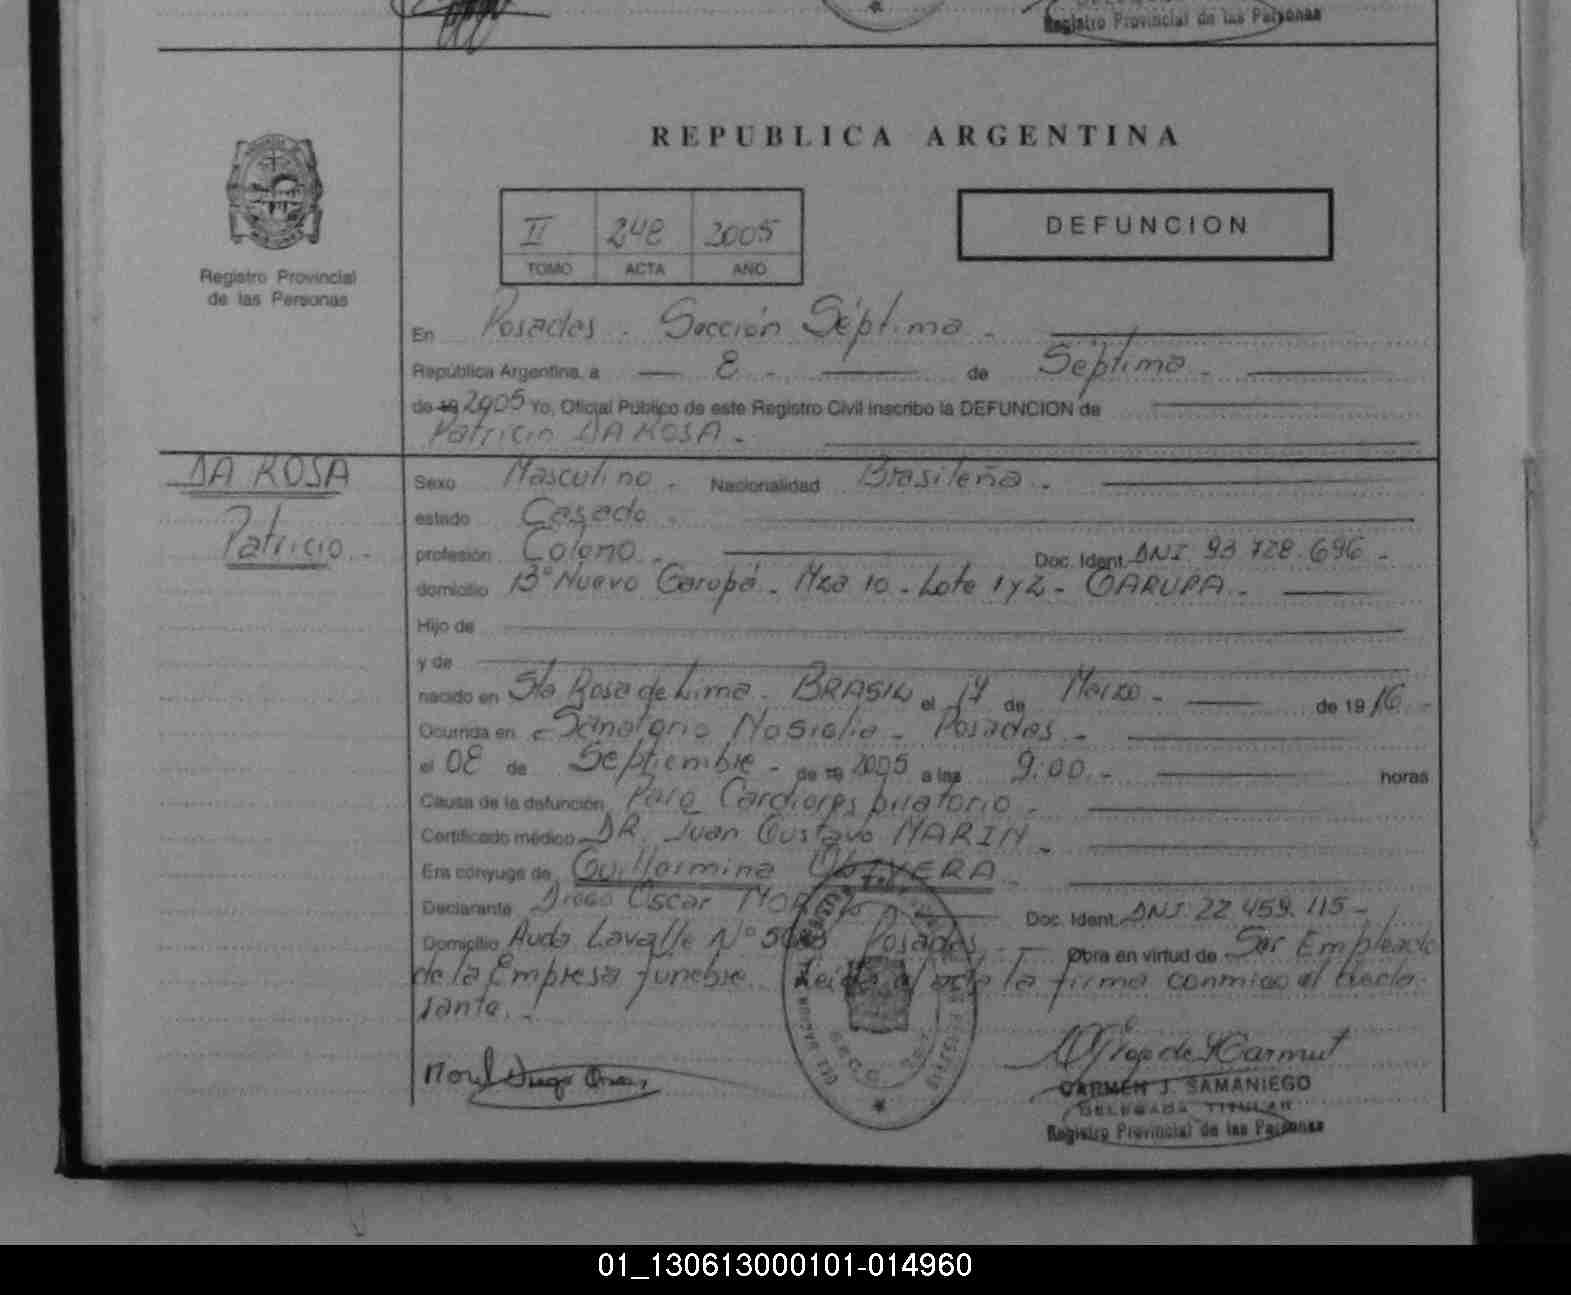 Registro Provincial de las Personas
REPUBLICA ARGENTINA
II 248 2005
TOMO ACTA AÑO
DEFUNCION
Registro Provincial
de las Personas
En Posadas - Sección Séptima -
República Argentina, a 8 - de Séptima -
de 19 2005 Yo, Oficial Público de este Registro Civil inscribo la DEFUNCION de
Patricio DA ROSA -
DA ROSA
Patricio -
Sexo Masculino - Nacionalidad Brasileña -
estado Casado -
profesión Colono - Doc. Ident. DNI. 93.728.696 -
domicilio B° Nuevo Garupá - Mza 10 - Lote 1 y 2 - GARUPA -
Hijo de
y de
nacido en Sta Rosa de Lima - BRASIL el 17 de Marzo - de 19 16 -
Ocurrida en Sanatorio Nosiglia - Posadas -
el 08 de Septiembre - de 19 2005 a las 9:00 - horas
Causa de la defunción Paro Cardiorespiratorio -
Certificado médico DR. Juan Gustavo MARIN -
Era cónyuge de Guillermina
Declarante Diego Oscar Doc. Ident. DNI. 22.459.115 -
Domicilio Avda Lavalle N° Posadas - Obra en virtud de Ser Empleado
de la Empresa funebre. Leida el acta la firma conmigo el decla-
rante. -
CARMEN J. SAMANIEGO
DELEGADA TITULAR
Registro Provincial de las Personas
01_130613000101-014960